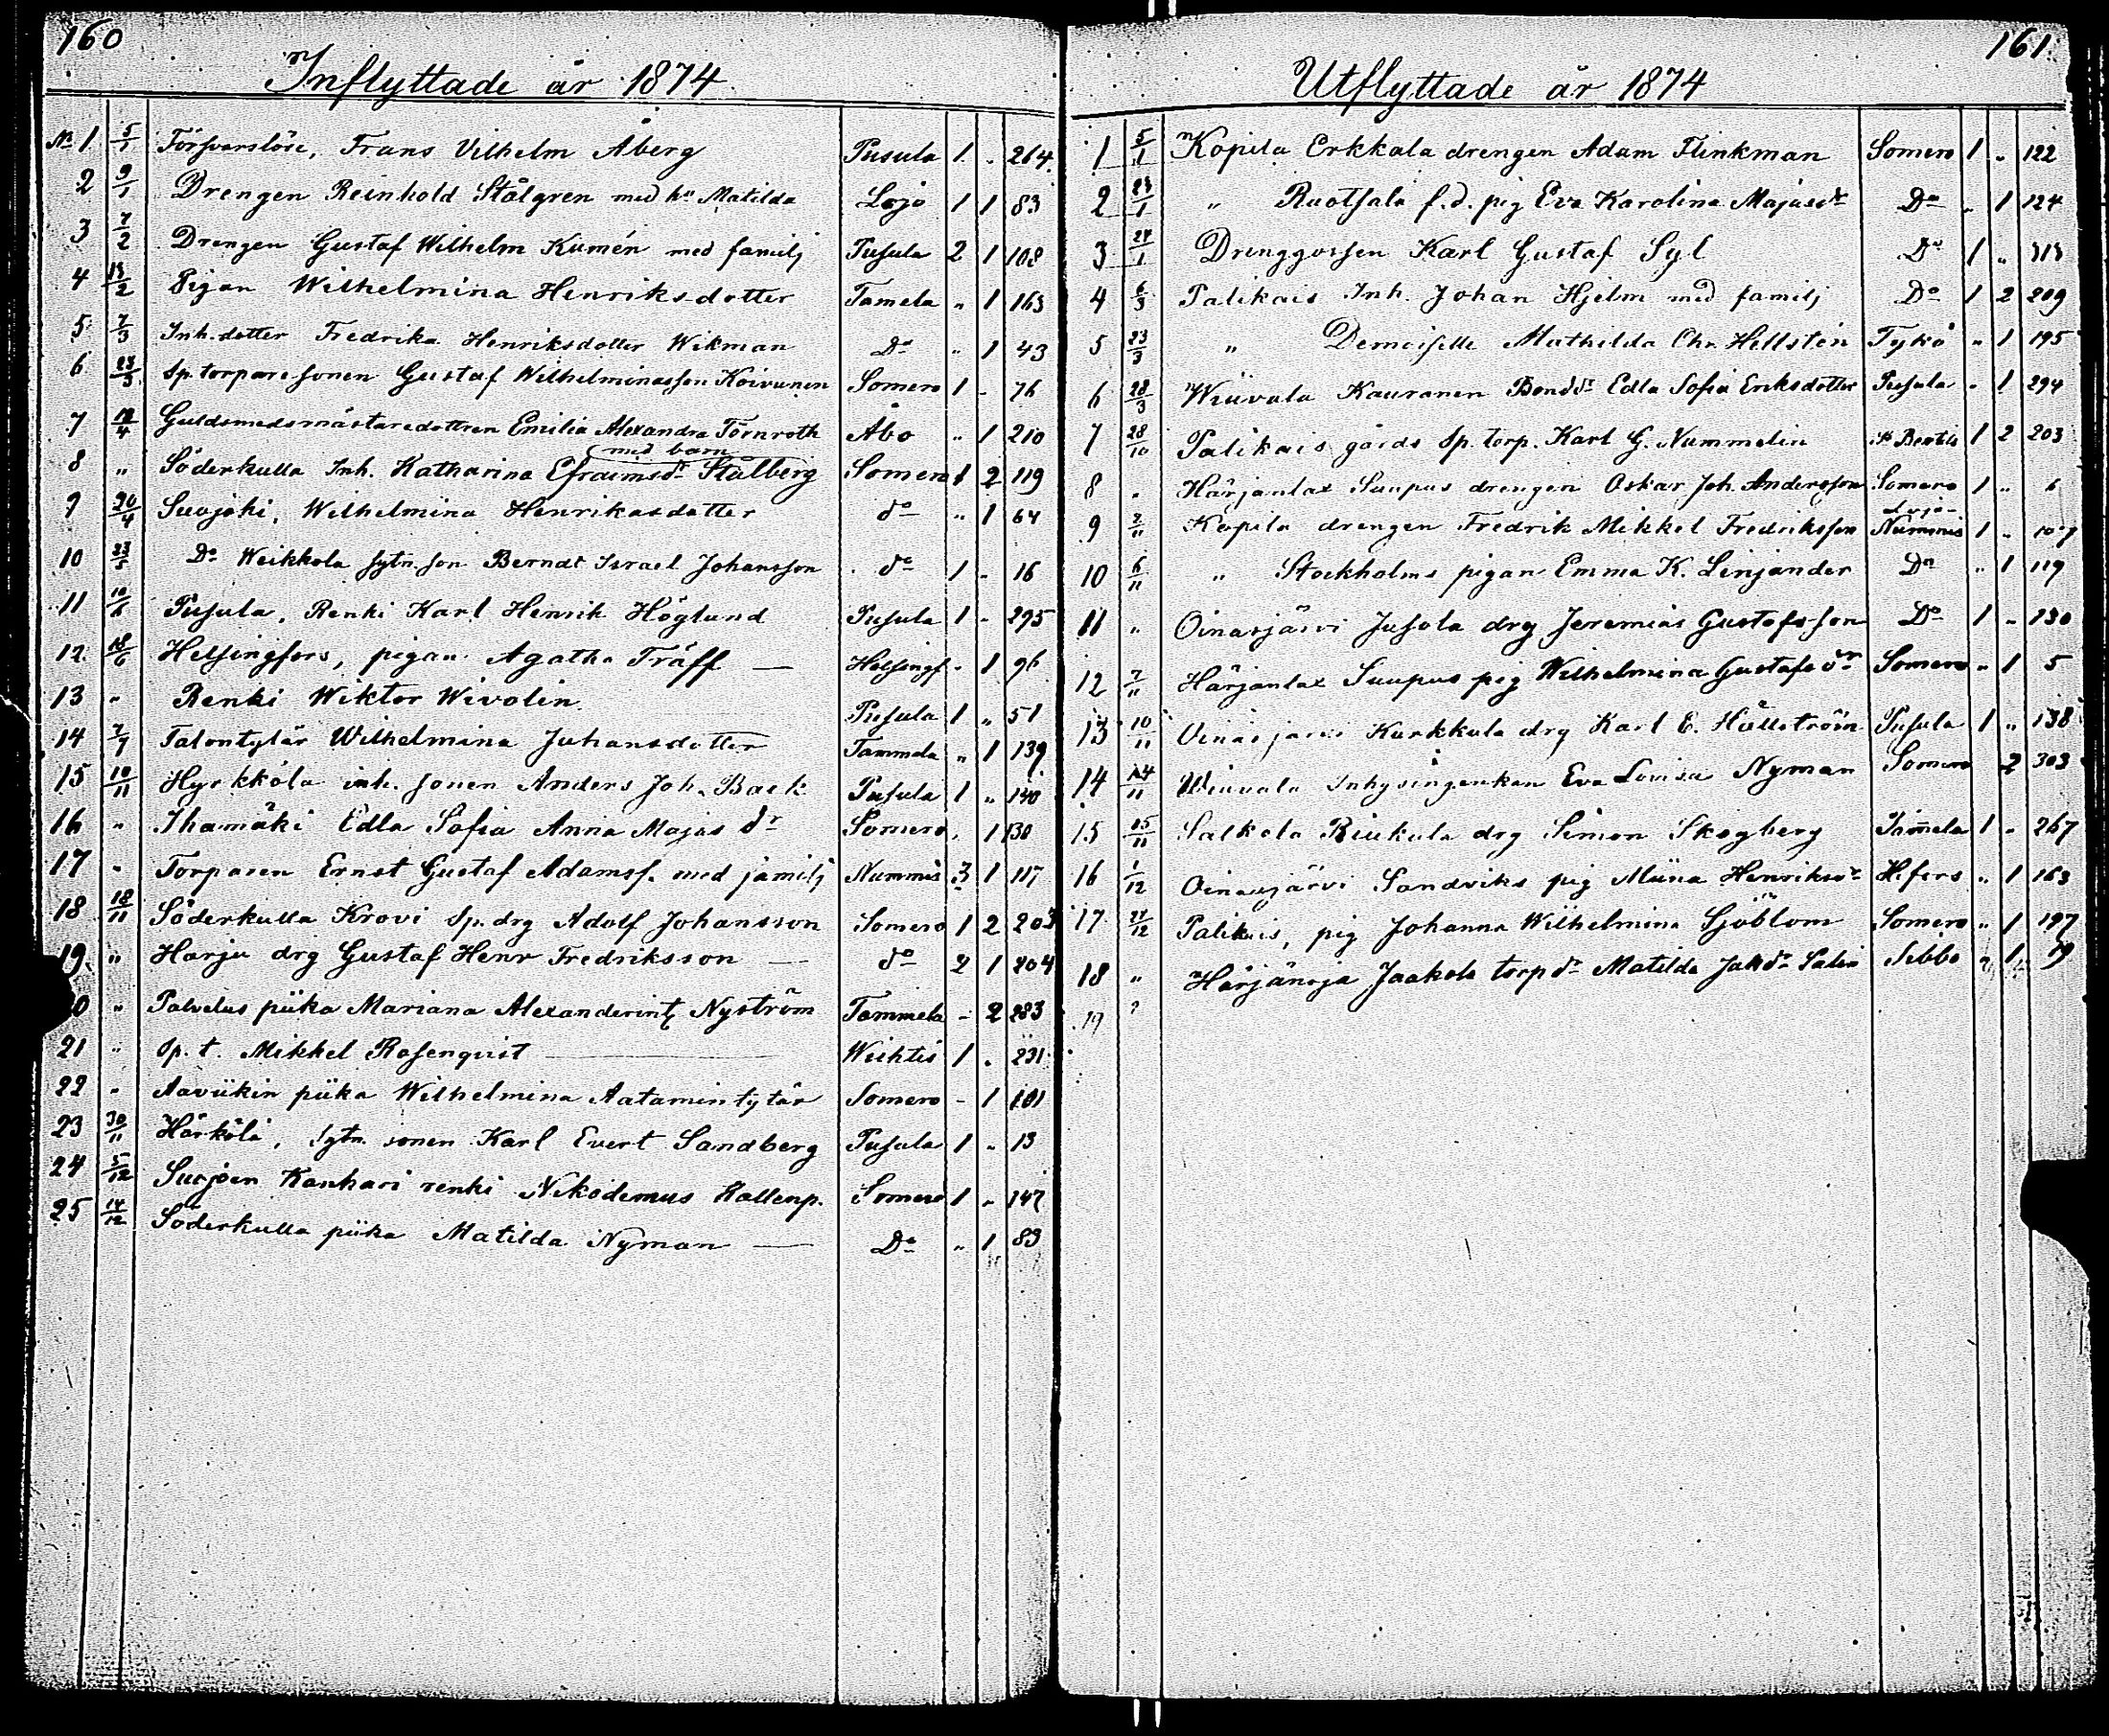 160
Inflyttade år 1874
No 1 5/1 Försvarslöse, Frans Vilhelm Åberg Pusula 1 „ 264.
2 9/1 Drengen Reinhold Stålgren med hu Matilda Lojo 1 1 83
3 7/2 Drengen Gustaf Wilhelm Kumén med familj Pusula 2 1 108
4 13/2 Pigan Wilhelmina Henriksdotter Tamela „ 1 163
5 7/3 Inh. dotter Fredrika Henriksdotter Wikman Do „ 1 43
6 23/3 Sp. torparesonen Gustaf Wilhelminasson Koivunen Somero 1 - 76
7 12/4 Guldsmedsmästaredottren Emilia Alexandra Törnroth Åbo „ 1 210
med barn
8 „ Söderkulla Inh. Katharina Efraimsdr Stålberg Somero 1 2 119
9 26/4 Suojoki, Wilhelmina Henriksdotter do „ 1 64
10 23/5 Do Weikkola sytn. son Berndt Israel Johansson do 1 - 16
11 10/6 Pusula, Renki Karl Henrik Höglund Pusula 1 - 295
12. 18/6 Helsingfors, pigan Agatha Träff — Helsingf. - 1 96
13 „ Renki Wiktor Wivolin Pusula 1 „ 51
14 7/7 Talontytär Wilhelmina Juhansdotter Tammela „ 1 139
15 10/11 Hyrkköla inh. sonen Anders Joh. Back Pusula 1 „ 140
16 „ Ihamäki Edla Sofia Anna Majas dr Somero, 1 130
17 „ Torparen Ernst Gustaf Adamsf. med familj Nummis 3 1 117
18 18/11 Söderkulla Krovi Sp. drg Adolf Johansson Somero 1 2 203
19. „ Harju drg Gustaf Henr Fredriksson — do 2 1 204
0 „ Palvelus piika Mariana Alexanderint. Nyström Tammela - 2 283
21 „ Sp. t. Mikkel Rosenqvist Wichtis 1 „ 231
22 „ Aaviikin piika Wilhelmina Aatamintytär Somero - 1 101
23 30/11 Härkälä, Sytn. sonen Karl Evert Sandberg Pusula 1 „ 13
24 5/12 Suojoen Kanhari renki Nikodemus Kallenp. Somero 1 „ 147
25 14/12 Söderkulla piika Matilda Nyman — Do „ 1 83
161.
Utflyttade år 1874
1 5/1 Kopila Erkkala drengen Adam Flinkman Somero 1 „ 122
2 23/1 „ Ruotsala f.d. pig Eva Karolina Majasdr Do „ 1 124
3 27/1 Drenggossen Karl Gustaf Syl Do 1 „ 313
4 6/3 Palikais Inh. Johan Hjelm med familj Do 1 2 209
5 23/3 „ Demoiselle Mathilda Chr. Hellstén Tykö „ 1 195
6 28/3 Wiuvala Kauranen Bondedr Edla Sofia Eriksdotter Pusula - 1 294
7 28/10 Palikais gårds Sp. torp. Karl G. Nummelin St Bertils 1 2 203
8 „ Härjanlax Suupus drengen Oskar Joh. Andersson Somero 1 „ 6
Lojo-
9 2/11 Kopila drengen Fredrik Mikkel Fredriksson Nummis 1 „ 107
10 6/11 „ Stockholms pigan Emma K. Linjander Do „ 1 119
11 „ Oinasjärvi Jusola drg Jeremias Gustafsson Do 1 „ 130
12 7/11 Härjanlax Suupus pig Wilhelmina Gustafsdr Somero „ 1 5
13 10/11 Oinasjärvi Kurkkula drg Karl E. Hällström Pusula 1 „ 138
14 14/11 Wiuvala Inhysingenkan Eva Lovisa Nyman Somero 2 303
15 15/11 Salkola Riukula drg Simon Skogberg Tammela 1 „ 267
16 1/12 Oinasjärvi Sandviks pig Miina Henriksdr H:fors „ 1 163
17 27/12 Palikais, pig Johanna Wilhelmina Sjöblom Somero „ 1 197
18 „ Härjänoja Jaakola torpdr Matilda Jakdr Salin Sibbo „ 1 19
19